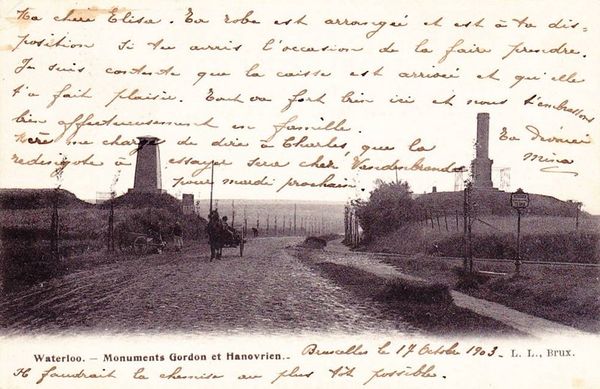 Ma chère Elisa. Ta robe est arrangée et est à ta dis=
position si tu aurris l'occasion de la faire prendre.
Je suis contente que la caisse est arrivée et qu'elle
t'a fait plaisir. Tout va fort bien ici et nous t'embrassons
bien affectueusement en famille.
Mère me charge de dire à Charles, que la
redingote à essayer sera chez Vandenbrande
pour mardi prochain
Ta Dévouée
Mina
Waterloo. — Monuments Gordon et Hanovrien.
Bruxelles le 17 Octobre 1903.
L. L., Brux.
Il faudrait la chemise au plus tôt possible.